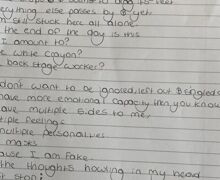 everything else passes by & yet
m still stuck here all alone.
the end of the day is this
I amount to?
e white crayon?
back stage worker?
don't want to be ignored, left out
have more emotional capacity then you know
ave multiple sides to me,
tiple feelings
ultiple personalities
masks
ause I am fake.
the thoughts howling in my head
t stop;